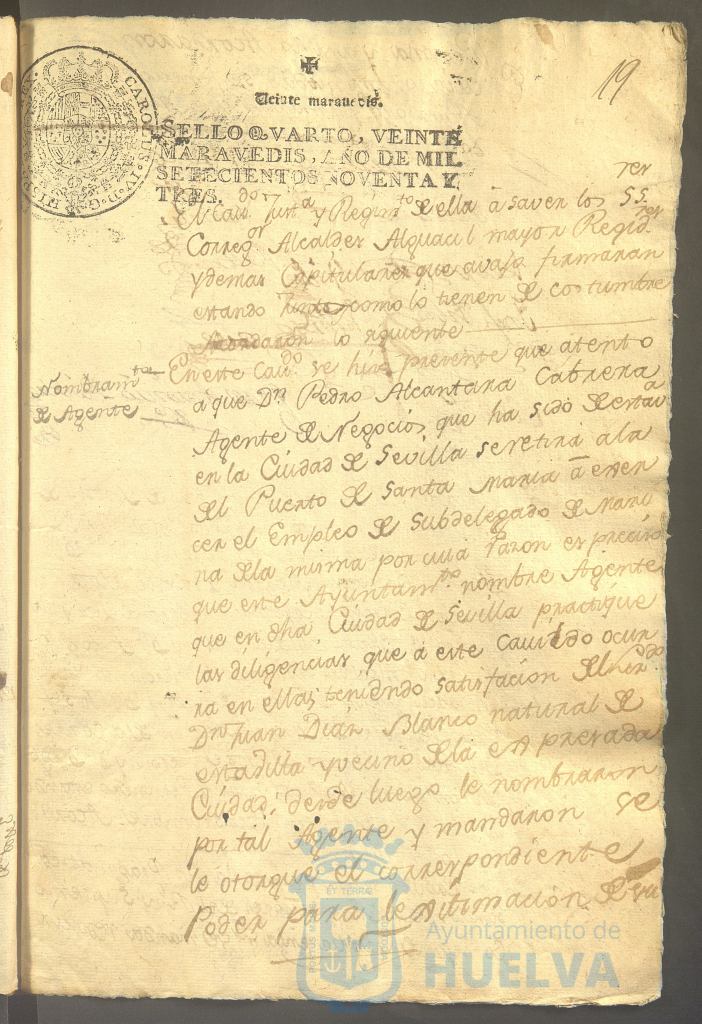 19
Veinte maravedis.
SELLO QVARTO, VEINTE
MARAVEDIS, AÑO DE MIL
SETECIENTOS NOVENTA Y
TRES.
CAROLUS IV D G HISP REX
El Cav.do Just.a y Regim.to de ella à saver los SS.res
Correg.or Alcaldes Alguacil mayor Regid.res
y demas Capitulares que avajo firmaran
estando juntos como lo tienen de costumbre
Acordaron lo siguiente
Nombram.to
de Agente
En este Cav.do se hizo presente que atento
a que Dn. Pedro Alcantara Cabrera
Agente de Negocios que ha sido de esta v.a
en la Ciudad de Sevilla se retira a la
del Puerto de Santa Maria à exer
cer el Empleo de Subdelegado de Mari
na de la misma por cuia razon es preciso
que este Ayuntam.to nombre Agente
que en dha Ciudad de Sevilla practique
las diligencias que à este Cavildo ocur
ran en ellas; teniendo satisfacion del
Dn. Juan Diaz Blanco natural de
esta villa y vecino de la expresada
Ciudad, desde luego le nombraron
por tal Agente y mandaron se
le otorgue el correspondiente
Poder para lexitimacion de su
PORTUS MARIS ET TERRÆ CUSTODIA
Ayuntamiento de
HUELVA